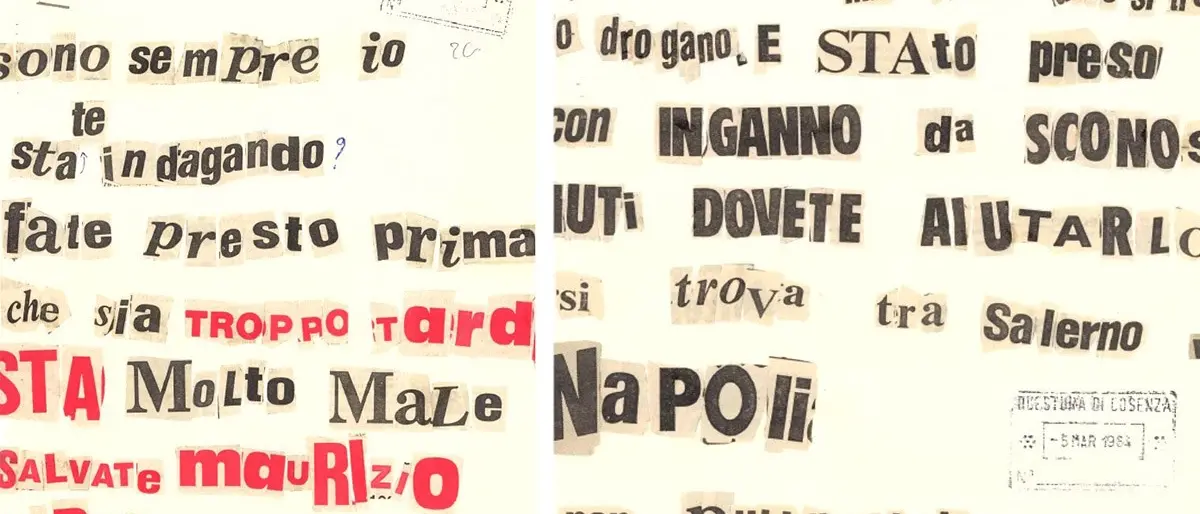 sono sempre io
te
stai indagando?
fate presto prima
che sia TROPPO Tard
STA Molto Male
SALVATE mauRIzio
o drogano. E STAto preso
con INGANNO da SCONOS
IUTi DOVETE AIUTARLO
si trova tra Salerno
NaPOli
QUESTURA DI COSENZA
-5 MAR 1984
N°